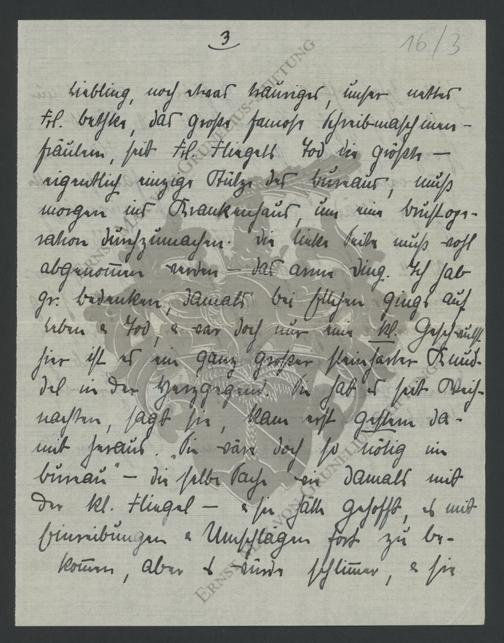 3
16/3
Liebling, noch etwas trauriges, unser nettes
Frl. Bethke, das große famose Schreibmaschinen-
fräulein, seit Frl. Fliegels Tod die größte —
eigentlich einzige Stütze des Bureaus, muß
morgen ins Krankenhaus, um eine Brustope-
ration durchzumachen. Die linke Seite muß wohl
abgenommen werden — das arme Ding. Ich hab
gr. Bedenken, damals bei gings auf
Leben & Tod, & war doch nur eine kl. Geschwulst
hier ist es ein ganz großer steinharter Knud-
del in der Herzgegend. Sie hab es seit Weih-
nachten, sagt sie, kam erst gestern da-
mit heraus. „Sie wäre doch so nötig im
Bureau" — die selbe Sache wie damals mit
der kl. Fliegel — & sie hätte gehofft, es mit
Einreibungen & Umschlägen fort zu be-
kommen, aber es würde schlimmer, & sie
ERNST MAX VON GRUNELIUS-STIFTUNG